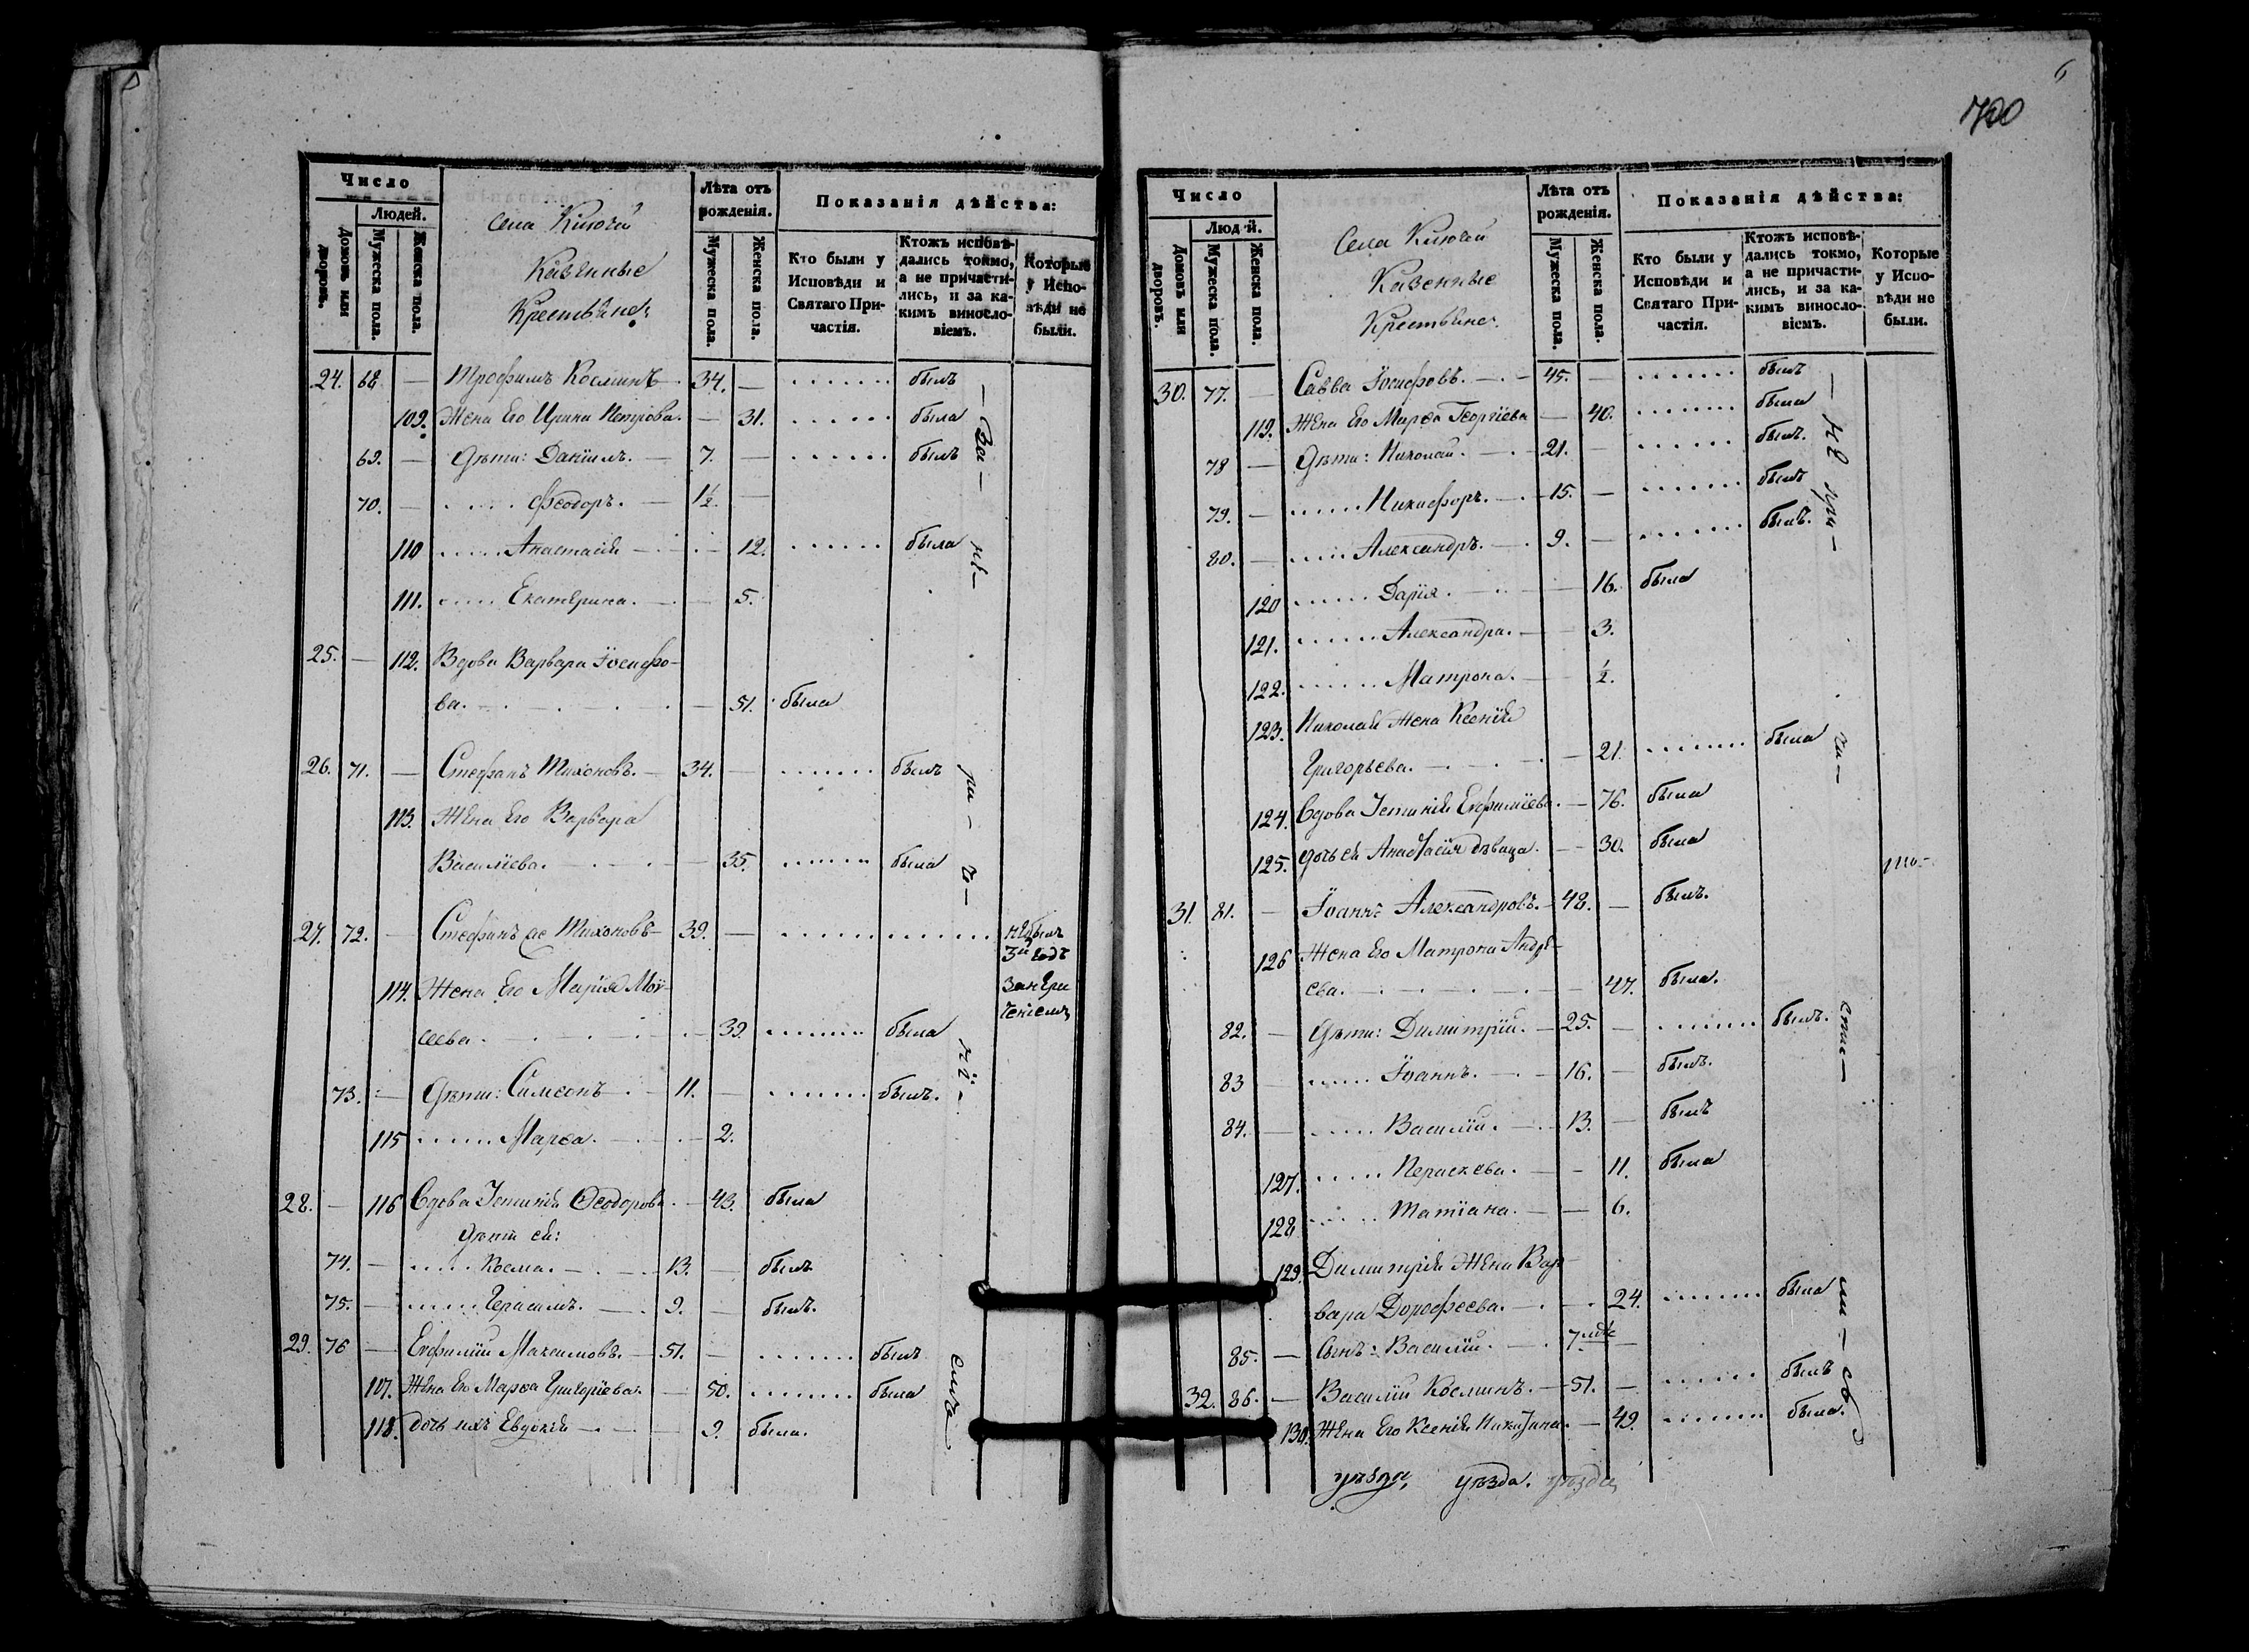 6
700
Число
Людей.
Домовъ или дворовъ.
Мужеска пола.
Женска пола.
Села Ключей
Казенные
Крестьяне.
Лѣта отъ рожденія.
Мужеска пола.
Женска пола.
Показанія дѣйства:
Кто были у Исповѣди и Святаго Причастія.
Ктожъ исповѣдались токмо, а не причастились, и за какимъ винословіемъ.
Которые у Исповѣди не были.
24. 68 — Трофимъ Косминъ — 34. — ....... былъ
109. Жена Его Ирина Петрова. — 31. ...... была
69. — Дѣти: Даніилъ. — 7. — ...... былъ
70. — ..... Феодоръ. — 1½. —
110 ..... Анастасія — 12. ...... была
111. ..... Екатерина. — 5.
25. — 112. Вдова Варвара Іосифо-
ва. — 51. была
26. 71. — Стефанъ Тихоновъ. — 34. — ....... былъ
113. Жена Его Варвара
Василіева. — 35. ....... была
27. 72. — Стефанъ же Тихоновъ — 39. — ............. не былъ
3й годъ
114. Жена Его Марія Мои-
сеева. — 39. ....... была
73. — Дѣти: Симеонъ — 11. — ....... былъ.
115 ...... Марѳа. — 2.
28. — 116 Вдова Устинія Ѳеодорова. — 43. была
Дѣти ея:
74. — ..... Косма. — 13. — былъ
75. — ..... Герасимъ. — 9. — былъ.
29. 76 — Евфимій Максимовъ. — 51. — ....... былъ
117. Жена Его Марѳа Григоріева. — 50. ....... была
118. дочь ихъ Евдокія — 9. была.
За-не-ра-че-ні-емъ
Число
Людей.
Домовъ или дворовъ.
Мужеска пола.
Женска пола.
Села Ключей
Казенные
Крестьяне.
Лѣта отъ рожденія.
Мужеска пола.
Женска пола.
Показанія дѣйства:
Кто были у Исповѣди и Святаго Причастія.
Ктожъ исповѣдались токмо, а не причастились, и за какимъ винословіемъ.
Которые у Исповѣди не были.
30. 77. — Савва Іосифовъ. — 45. — ....... былъ
119. Жена Его Марѳа Георгіева — 40. ....... была
78 — Дѣти: Николай. — 21. — ...... былъ.
79. — ...... Никифоръ. — 15. — ....... былъ
80. — ..... Александръ. — 9. — ....... былъ.
120 ...... Дарія. — 16. была
121. ...... Александра. — 3.
122. ...... Матрона. — ½.
123. Николая жена Ксенія
Григорьева. — 21. ....... была
124. Вдова Устинія Евфиміева. — 76. была
125. дочь ея Анастасія дѣвица. — 30. была
31. 81. — Іоаннъ Александровъ. — 48. — былъ.
126 Жена Его Матрона Андре-
ева. — 47. была.
82. — Дѣти: Димитрій. — 25. — ....... былъ.
83 — ..... Іоаннъ. — 16. — былъ.
84. — ..... Василій. — 13. — былъ
127. ...... Параскева. — 11. была
128 ...... Татіана. — 6.
129. Димитрія жена Вар-
вара Дорофеева. — 24. ....... была
85. — Сынъ: Василій. — 7 мѣс —
32. 86. — Василій Косминъ. — 51. — ...... былъ
130. Жена Его Ксенія Никитина. — 49. ....... была.
уѣзда, уѣзда. уѣзда,